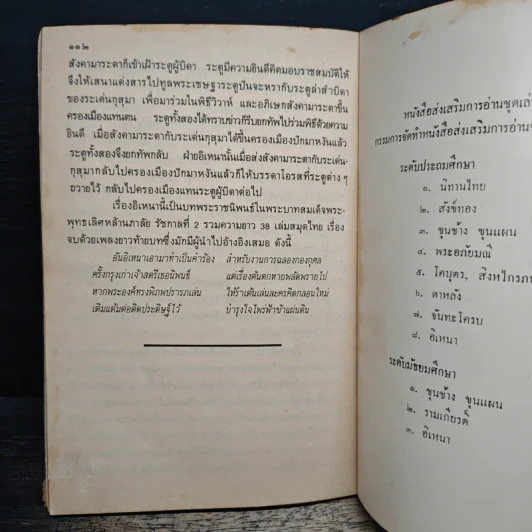 ๑๑๒
สังคามาระตาก็เข้าเฝ้าระตูผู้บิดา ระตูมีความยินดีคิดมอบราชสมบัติให้
จึงให้เสนาแต่งสารไปทูลพระเชษฐาระตูปันจะหรากับระตูล่าสำบิดา
ของระเด่นกุสุมา เพื่อมาร่วมในพิธีวิวาห์ และอภิเษกสังคามาระตาขึ้น
ครองเมืองแทนตน ระตูทั้งสองได้ทราบข่าวก็รีบยกทัพไปร่วมพิธีด้วยความ
ยินดี เมื่อสังคามาระตากับระเด่นกุสุมาได้ขึ้นครองเมืองปักมาหงันแล้ว
ระตูทั้งสองจึงยกทัพกลับ ฝ่ายอิเหนานั้นเมื่อส่งสังคามาระตากับระเด่น-
กุสุมากลับไปครองเมืองปักมาหงันแล้วก็ให้บรรดาโอรสที่ระตูต่าง ๆ
ถวายไว้ กลับไปครองเมืองแทนระตูผู้บิดาต่อไป
เรื่องอิเหนานี้เป็นบทพระราชนิพนธ์ในพระบาทสมเด็จพระ-
พุทธเลิศหล้านภาลัย รัชกาลที่ 2 รวมความยาว 38 เล่มสมุดไทย เรื่อง
จบด้วยเพลงยาวท้ายบทซึ่งมักมีผู้นำไปอ้างอิงเสมอ ดังนี้
อันอิเหนาเอามาทำเป็นคำร้อง สำหรับงานการฉลองกองกุศล
ครั้งกรุงเก่าเจ้าสตรีเธอนิพนธ์ แต่เรื่องต้นตกหายพลัดพรายไป
หากพระองค์ทรงพิภพปรารภเล่น ให้รำเต้นเล่นละครคิดกลอนใหม่
เติมแต้มต่อติดประดิษฐ์ไว้ บำรุงใจไพร่ฟ้าข้าแผ่นดิน
หนังสือส่งเสริมการอ่านชุดเล่
กรรมการจัดทำหนังสือส่งเสริมการอ่าน
ระดับประถมศึกษา
๑. นิทานไทย
๒. สังข์ทอง
๓. ขุนช้าง ขุนแผน
๔. พระอภัยมณี
๕. โคบุตร, สิงหไกรภ
๖. ดาหลัง
๗. จันทะโครบ
๘. อิเหนา
ระดับมัธยมศึกษา
๑. ขุนช้าง ขุนแผน
๒. รามเกียรติ์
๓. อิเหนา